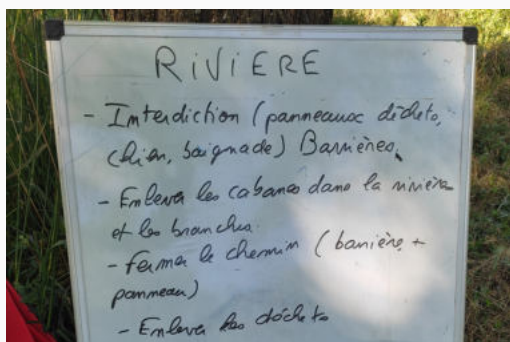 RIVIERE
- Interdiction (panneaux déchets,
chien, baignade) Barrières.
- Enlever les cabanes dans la rivière
et les branches.
- fermer le chemin (barrière +
panneau)
- Enlever les déchets